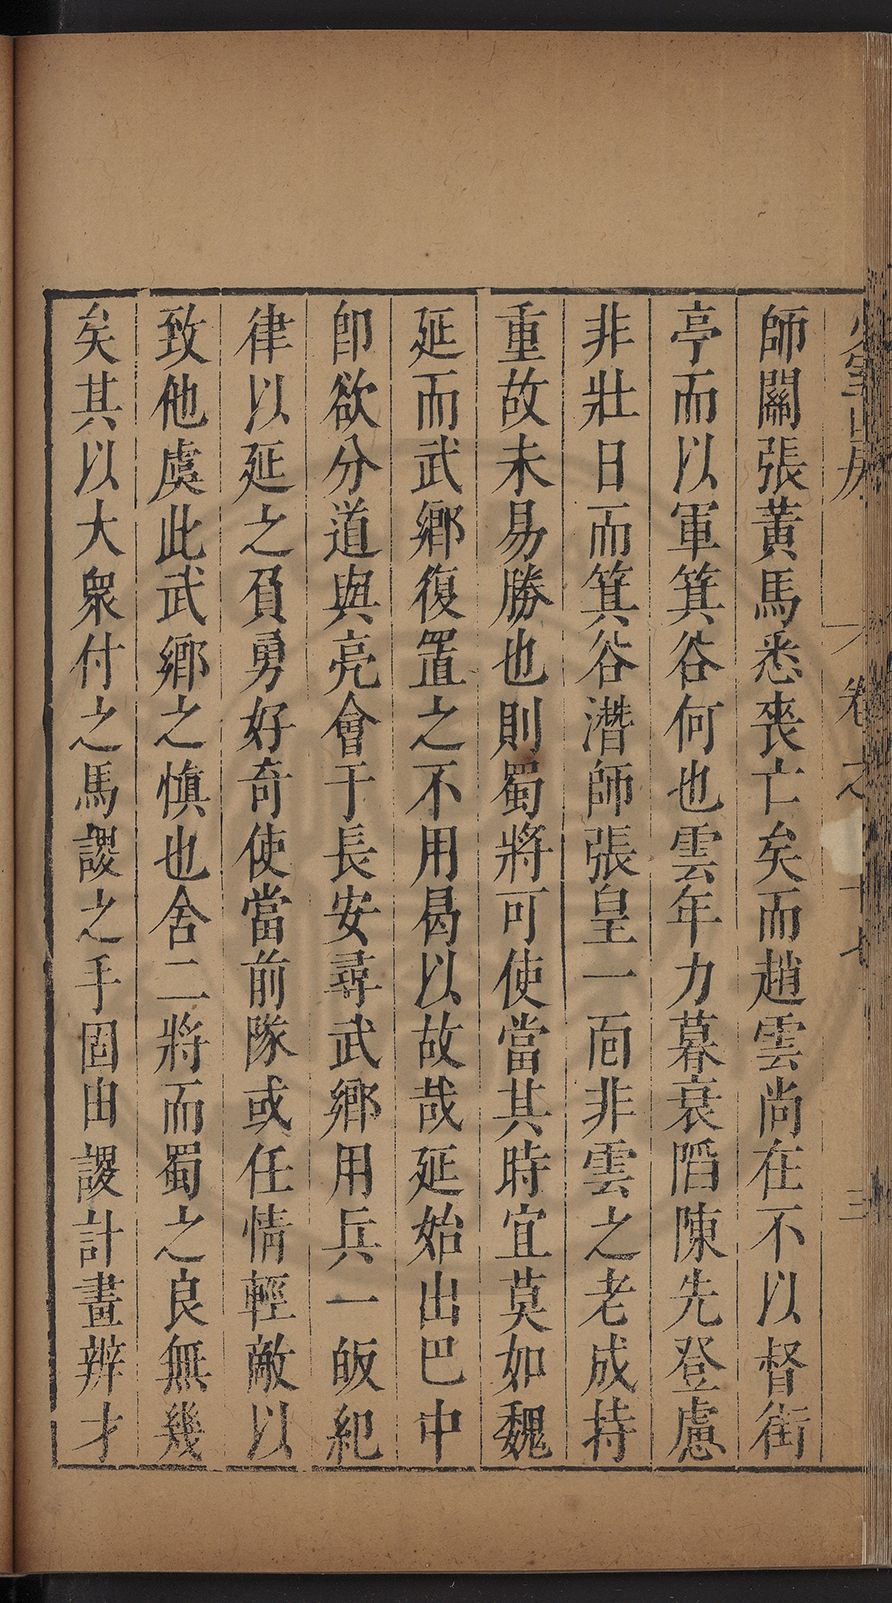 少室山房 卷之 十七 三
師關張黃馬悉喪亡矣而趙雲尚在不以督街
亭而以軍箕谷何也雲年力暮衰陷陳先登慮
非壯日而箕谷潛師張皇一面非雲之老成持
重故未易勝也則蜀將可使當其時宜莫如魏
延而武鄉復置之不用曷以故哉延始出巴中
卽欲分道與亮會于長安尋武鄉用兵一皈紀
律以延之負勇好奇使當前隊或任情輕敵以
致他虞此武鄉之慎也舍二將而蜀之良無幾
矣其以大衆付之馬謖之手固由謖計畫辨才